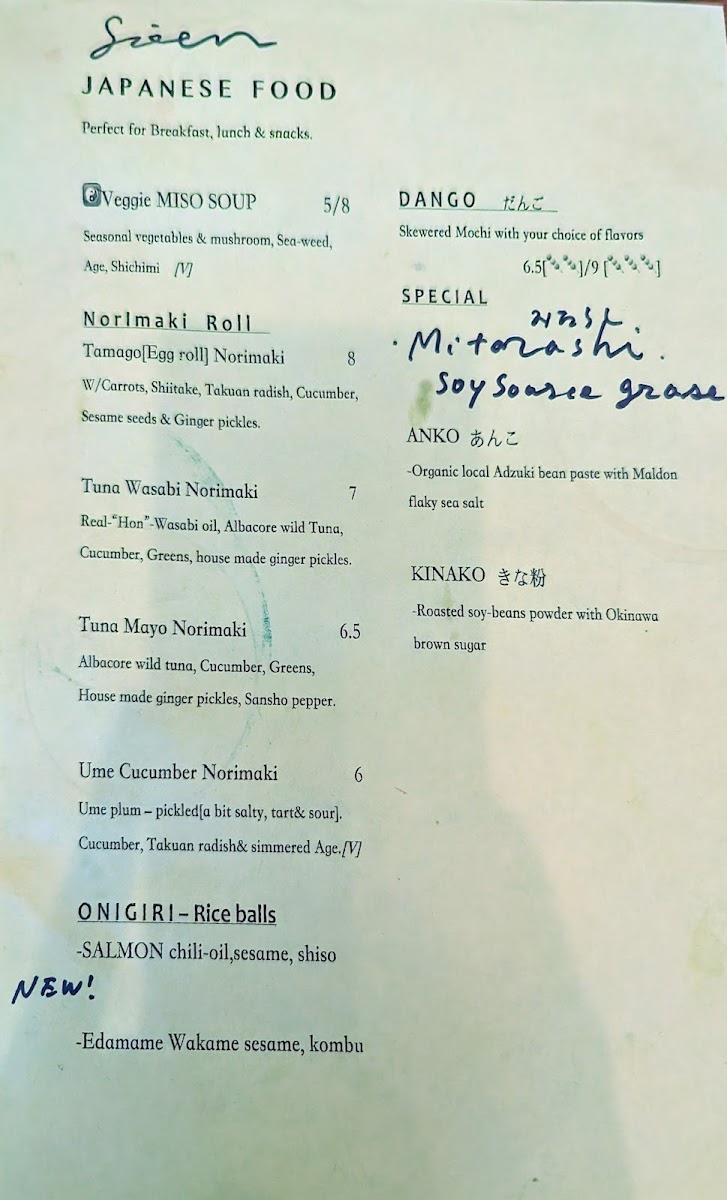 JAPANESE FOOD
Perfect for Breakfast, lunch & snacks.
Veggie MISO SOUP 5/8
Seasonal vegetables & mushroom, Sea-weed,
Age, Shichimi [V]
NorImaki Roll
Tamago[Egg roll] Norimaki 8
W/Carrots, Shiitake, Takuan radish, Cucumber,
Sesame seeds & Ginger pickles.
Tuna Wasabi Norimaki 7
Real-“Hon”-Wasabi oil, Albacore wild Tuna,
Cucumber, Greens, house made ginger pickles.
Tuna Mayo Norimaki 6.5
Albacore wild tuna, Cucumber, Greens,
House made ginger pickles, Sansho pepper.
Ume Cucumber Norimaki 6
Ume plum – pickled[a bit salty, tart& sour].
Cucumber, Takuan radish& simmered Age.[V]
ONIGIRI – Rice balls
-SALMON chili-oil,sesame, shiso
NEW!
-Edamame Wakame sesame, kombu
DANGO だんご
Skewered Mochi with your choice of flavors
6.5[🐾🐾]/9 [🐾🐾🐾]
SPECIAL
みたらし
· Mitarashi.
Soy
ANKO あんこ
-Organic local Adzuki bean paste with Maldon
flaky sea salt
KINAKO きな粉
-Roasted soy-beans powder with Okinawa
brown sugar